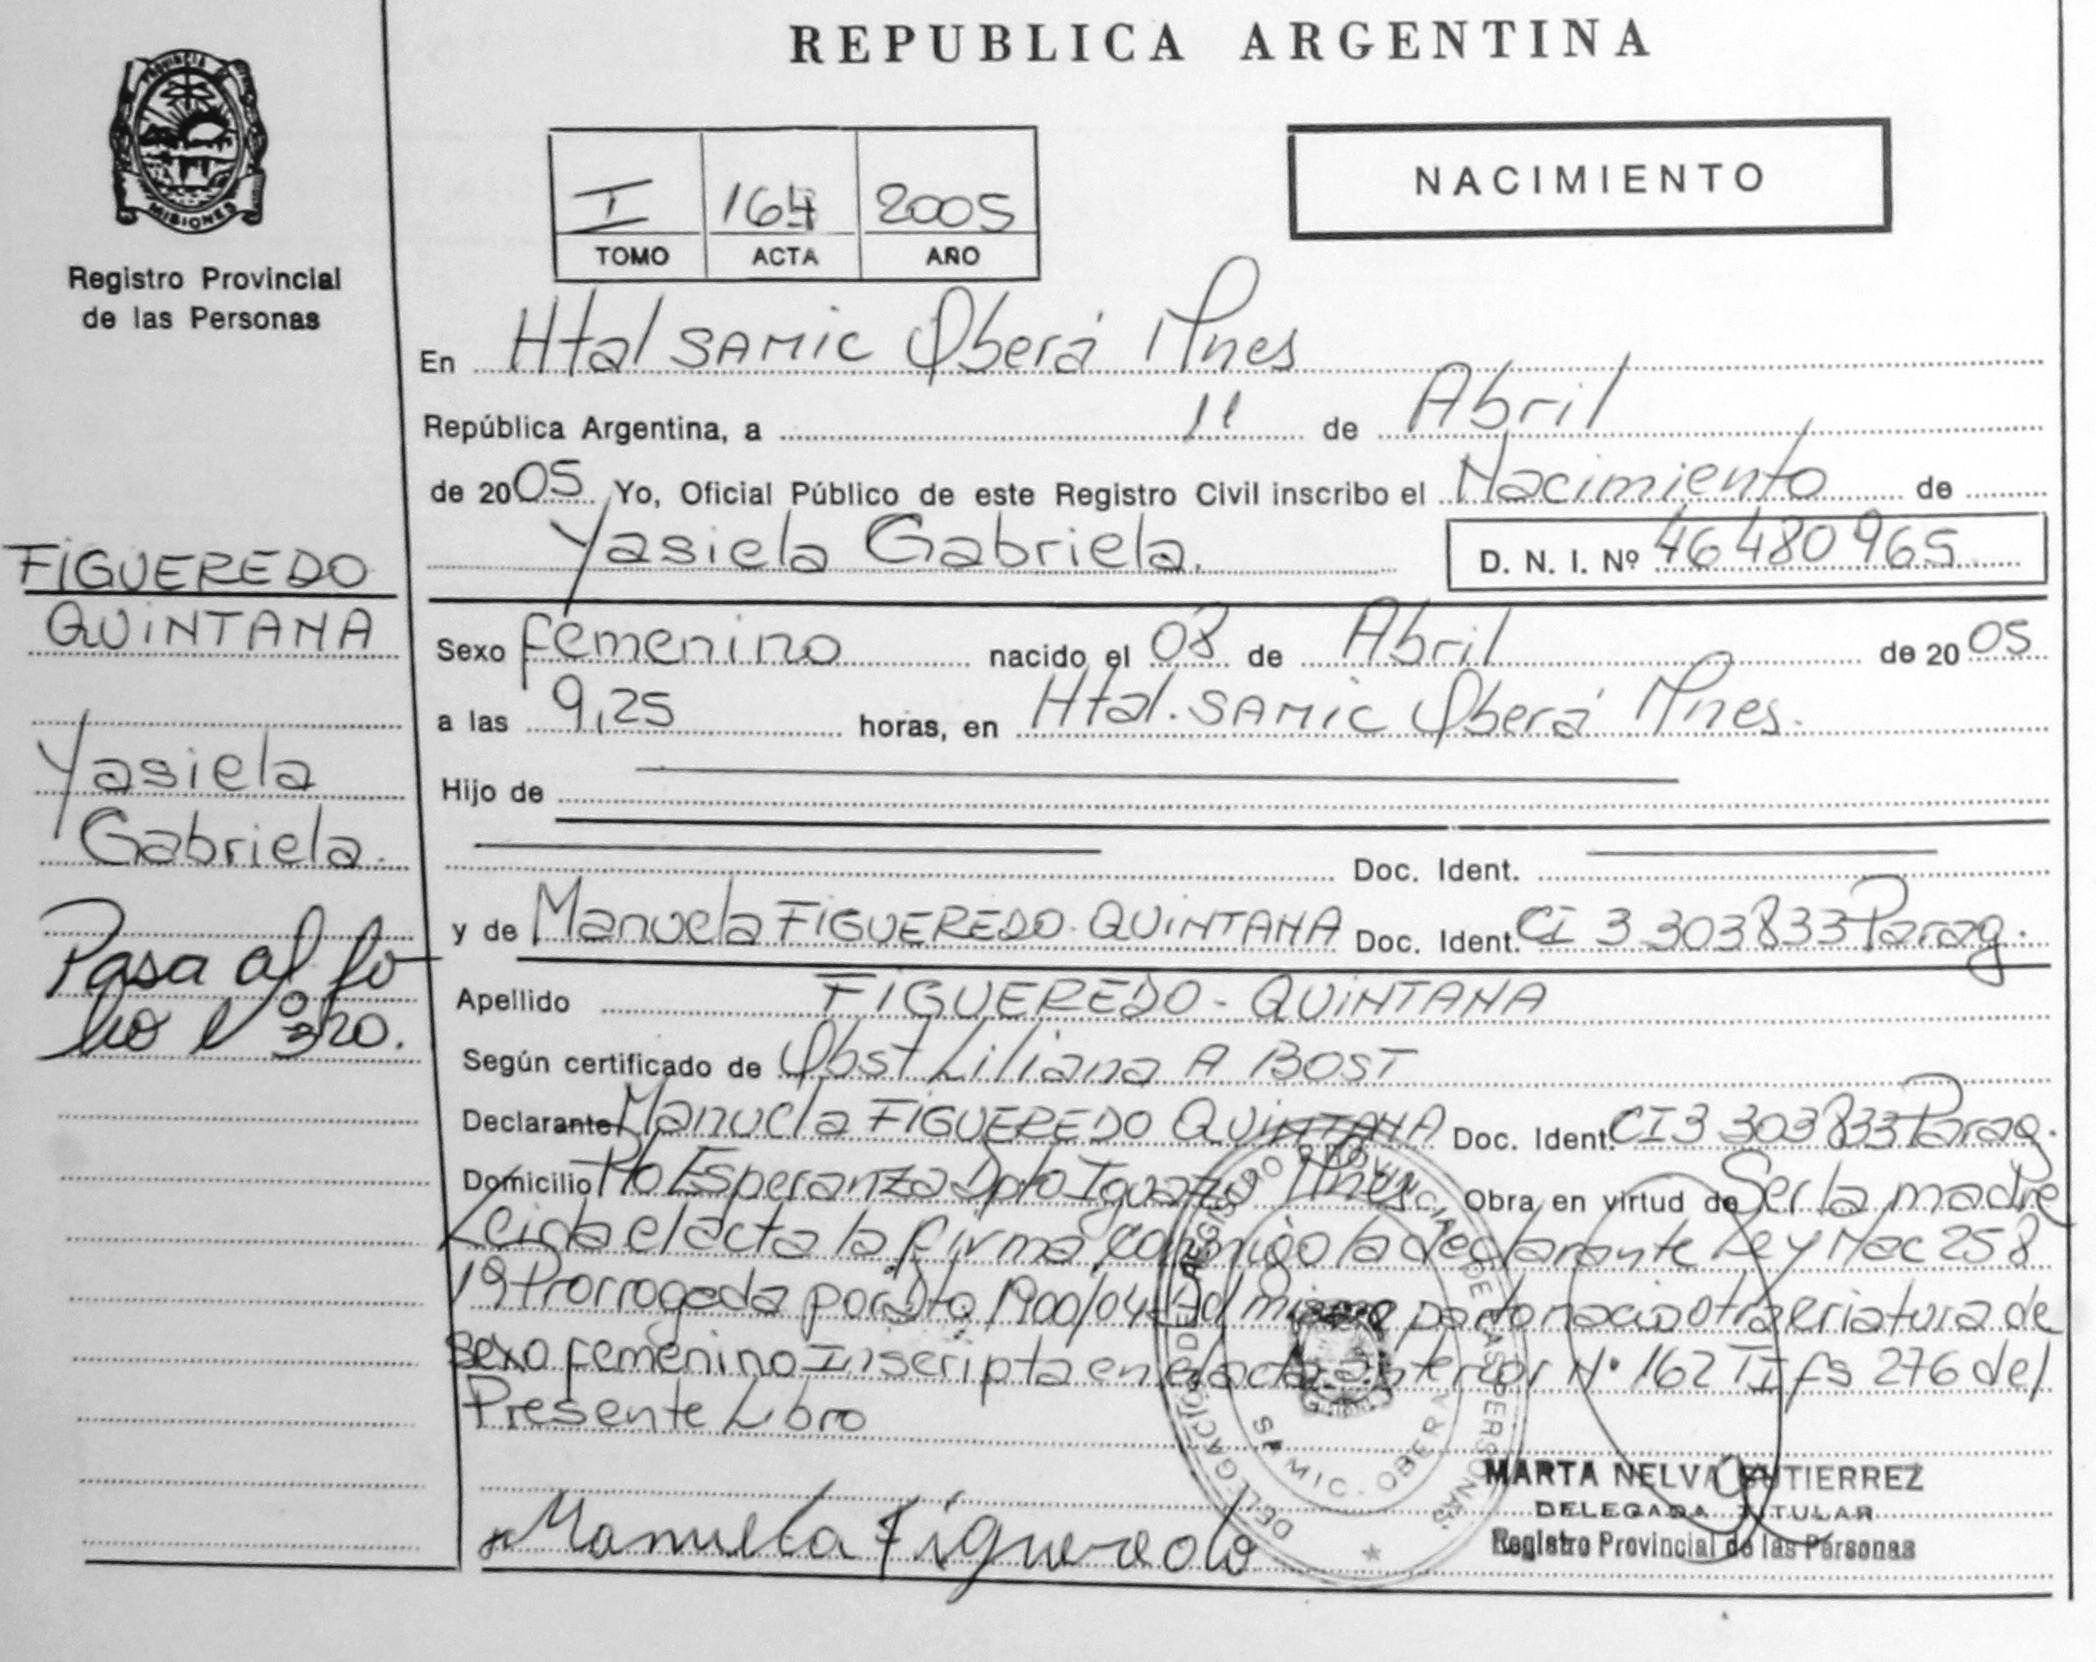 REPUBLICA ARGENTINA
PROVINCIA DE
MISIONES
Registro Provincial
de las Personas
I 164 2005
TOMO ACTA AÑO
NACIMIENTO
En Htal SAMIC Oberá Mnes
República Argentina, a 11 de Abril
de 2005 Yo, Oficial Público de este Registro Civil inscribo el Nacimiento de
Yasiela Gabriela. D. N. I. Nº 46480965
FIGUEREDO
QUINTANA
Yasiela
Gabriela.
Pasa al fo-
lio Nº 320.
Sexo femenino nacido el 08 de Abril de 2005
a las 9,25 horas, en Htal. SAMIC Oberá Mnes.
Hijo de
Doc. Ident.
y de Manuela FIGUEREDO-QUINTANA Doc. Ident. CI 3 303833 Parag.
Apellido FIGUEREDO-QUINTANA
Según certificado de Obst Liliana A BOST
Declarante Manuela FIGUEREDO QUINTANA Doc. Ident. CI 3 303833 Parag.
Domicilio Pto Esperanza Dpto Iguazú Mnes Obra en virtud de Ser la madre
Leida el acta la firma conmigo la declarante Ley Nac 258
19 Prorrogada por Dto 1900/04 del mismo parto nacio otra criatura de
sexo femenino Inscripta en el acta anterior Nº 162 TI fs 276 del
Presente Libro
DELEGACIÓN DE REGISTRO PROVINCIAL DE LAS PERSONAS
SAMIC - OBERÁ
Manuela Figueredo
MARTA NELVA GUTIERREZ
DELEGADA TITULAR
Registro Provincial de las Personas